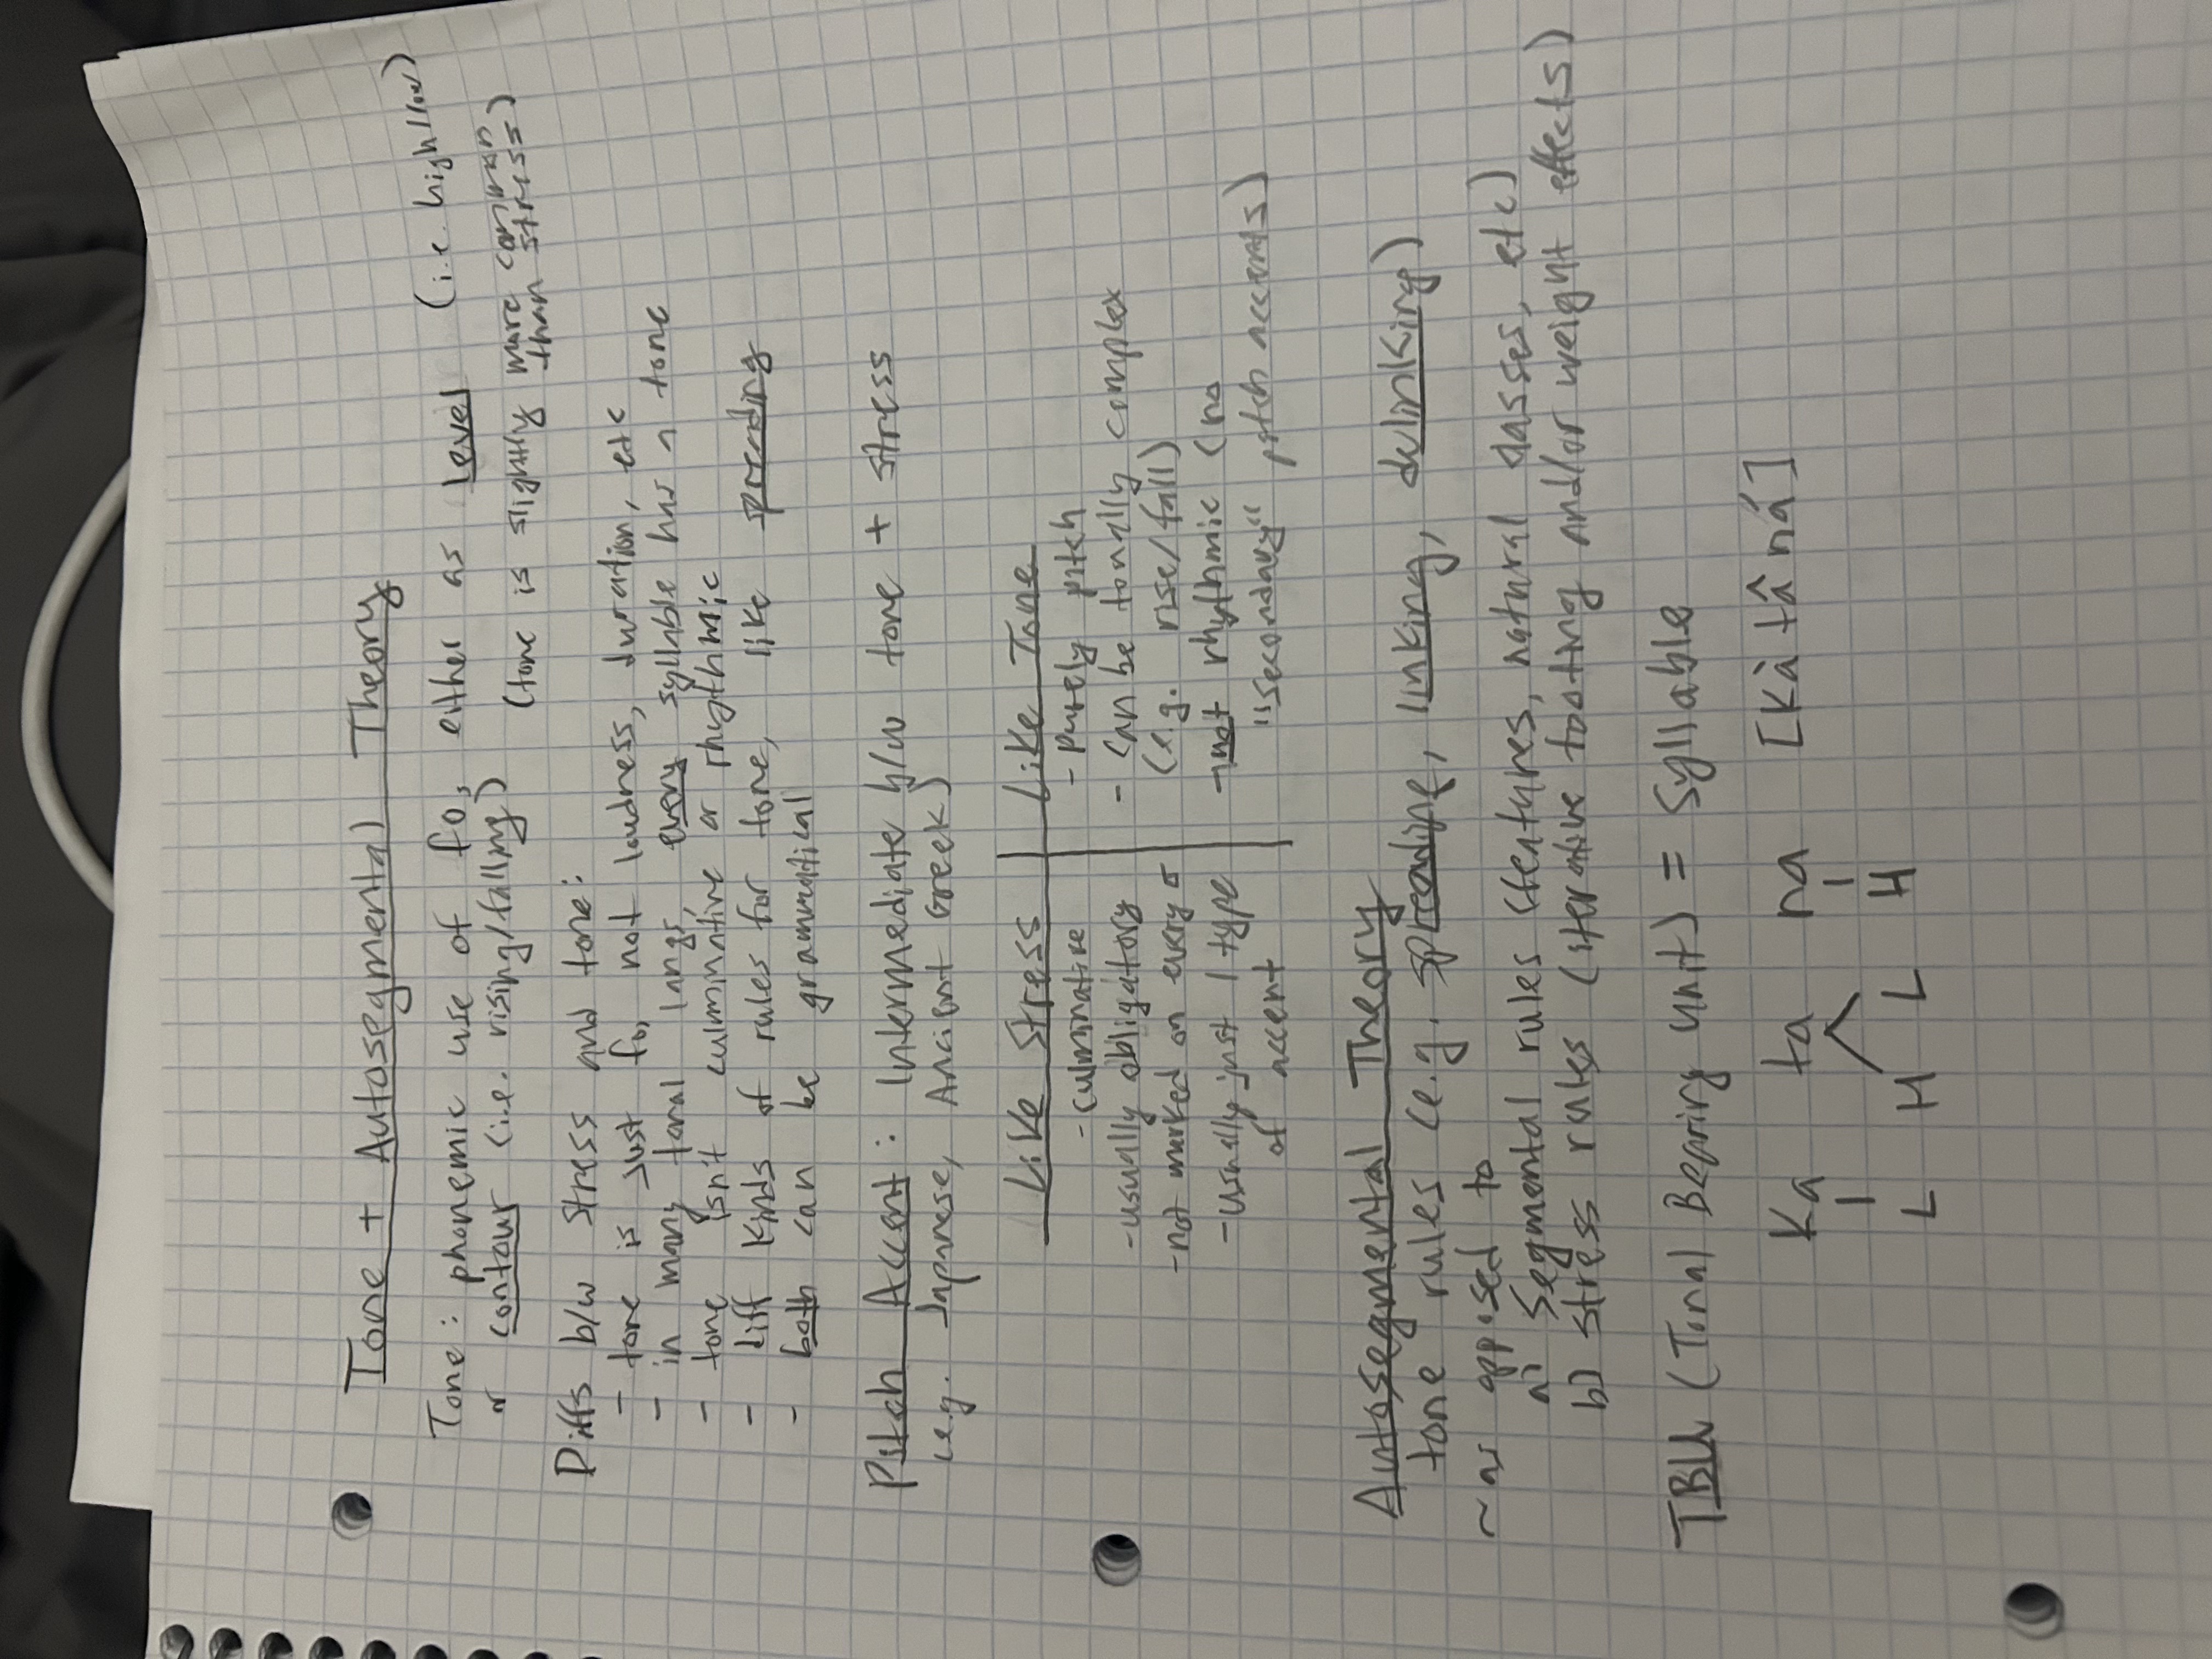 Tone + Autosegmental Theory
Tone: phonemic use of f0, either as level (i.e. high/low)
or contour (i.e. rising/falling)
(tone is slightly more common
than stress)
Diffs b/w stress and tone:
- tone is just f0, not loudness, duration, etc
- in many tonal langs, every syllable has a tone
- tone isn't culminative or rhythmic
- diff kinds of rules for tone, like spreading
- both can be grammatical
Pitch Accent: Intermediate b/w tone + stress
(e.g. Japanese, Ancient Greek)
Like Stress
- culminative
- usually obligatory
- not marked on every σ
- usually just 1 type
of accent
Like Tone
- Purely pitch
- can be tonally complex
(e.g. rise/fall)
- not rhythmic (no
"secondary" pitch accents)
Autosegmental Theory
tone rules (e.g. spreading, linking, delinking)
~ as opposed to
a) Segmental rules (features, natural classes, etc)
b) stress rules (iterative footing and/or weight effects)
TBU (Tonal Bearing Unit) = Syllable
Ka ta na [Kà tâ ná]
L H L H